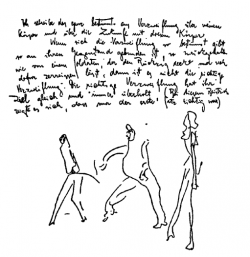 Ich strich das ganz bestimmt aus Verzweiflung über meinen
Körper und über die Zukunft mit diesem Körper
Wenn sich die Verzweiflung so bestimmt gibt
so an ihren Gegenstand gebunden ist, so zurückgehalten
wie von einem Soldaten, der den Rückzug deckt und sich
dafür zerreissen lässt, dann ist es nicht die richtige
Verzweiflung. Die richtige Verzweiflung hat ihr
Ziel gleich und immer überholt, (Bei diesem Beistrich
zeigt es sich, dass nur der erste Satz richtig war)